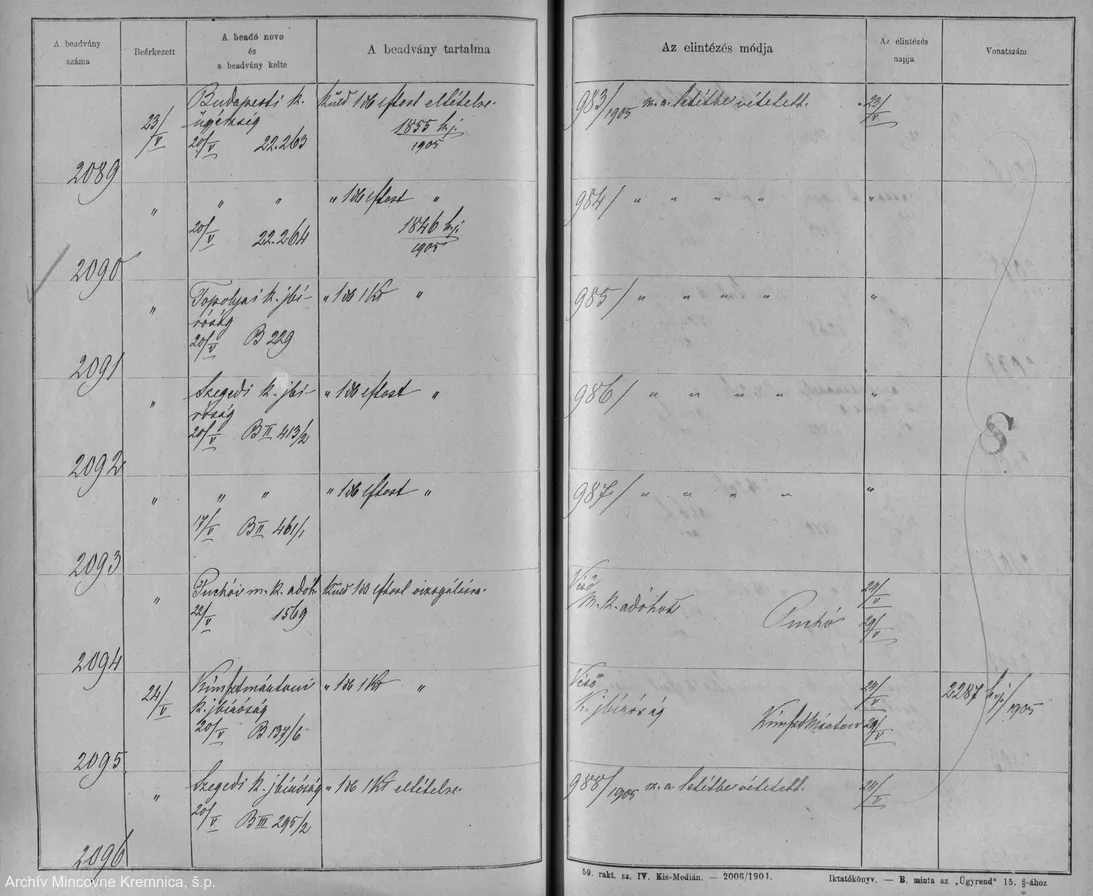 A beadvány száma
Beérkezett
A beadó neve és a beadvány kelte
A beadvány tartalma
Az elintézés módja
Az elintézés napja
Vonatszám
2089
23/V
Budapesti k. ügyészség
20/V 22.263
Küld 1 db eftost eltételre.
1855 bej. 1905
983/1905 sz. a. letétbe vétetett.
23/V
2090
" " "
20/V 22.264
" 1 db eftost "
1846 bej. 1905
984/ " " " "
"
2091
"
Topolyai k. jbíróság
20/V B 229
" 1 db 1 Kr "
985/ " " " "
"
2092
"
Szegedi k. jbíróság
20/V B II 413/2
" 1 db eftost "
986/ " " " "
"
2093
" " "
17/V B II 461/1
" 1 db eftost "
987/ " " " "
"
2094
"
Puchói m. k. adóh.
22/V 1569
Küld 1 db eftost vizsgálásra.
M. k. adóhiv. Puchó
29/V
2095
24/V
Kunszentmártoni k. jbíróság
20/V B 137/6
" 1 db 1 Kr "
K. jbíróság
Kunszentmárton
29/V
2287 bej/1905
2096
"
Szegedi k. jbíróság
20/V B III 295/2
" 1 db 1 Kr eltételre.
988/1905 sz. a. letétbe vétetett.
24/V
S
59. rakt. sz. IV. Kis-Medián. — 2006/1904.
Iktatókönyv. — B. minta az „Ügyrend" 15. §-ához
Archív Mincovne Kremnica, š.p.